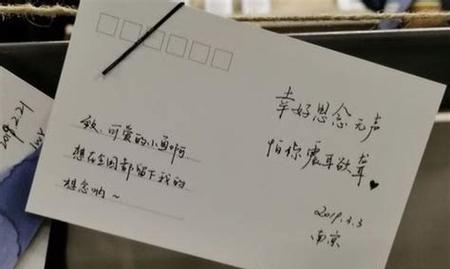 致:可爱的小
想在全国都留下我的
想念哟~
幸好思念无声
怕你震耳欲聋
南京
2019.2.21